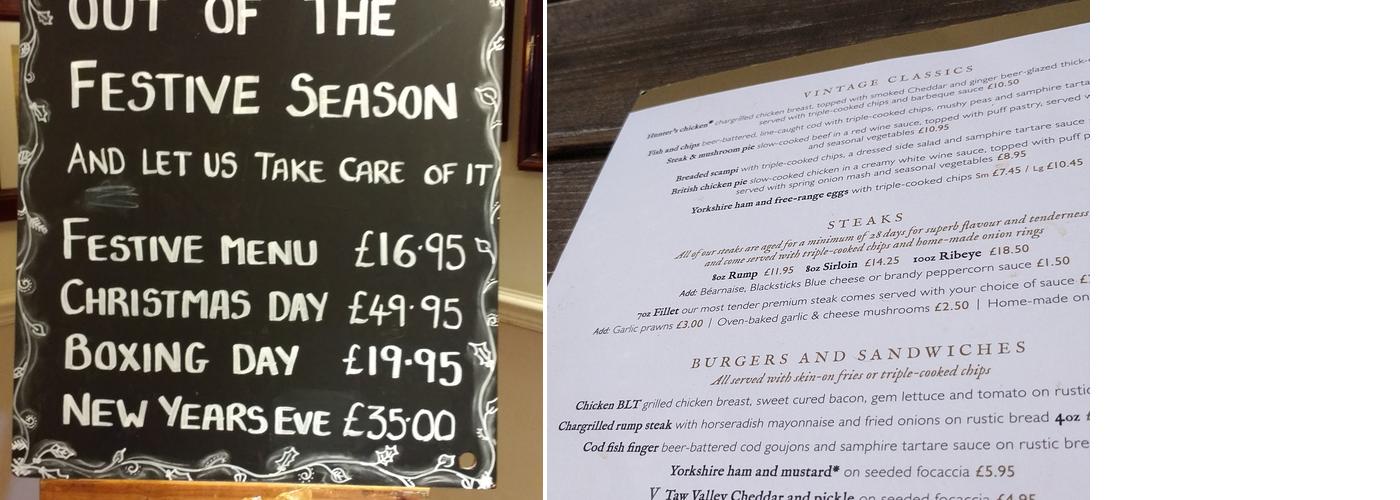 OUT OF THE
FESTIVE SEASON
AND LET US TAKE CARE OF IT
FESTIVE MENU £16.95
CHRISTMAS DAY £49.95
BOXING DAY £19.95
NEW YEARS EVE £35.00
VINTAGE CLASSICS
Hunter's chicken* chargrilled chicken breast, topped with smoked Cheddar and ginger beer-glazed thick-
served with triple-cooked chips and barbeque sauce £10.50
Fish and chips beer-battered, line-caught cod with triple-cooked chips, mushy peas and samphire tarta
Steak & mushroom pie slow-cooked beef in a red wine sauce, topped with puff pastry, served w
and seasonal vegetables £10.95
Breaded scampi with triple-cooked chips, a dressed side salad and samphire tartare sauce
British chicken pie slow-cooked chicken in a creamy white wine sauce, topped with puff p
served with spring onion mash and seasonal vegetables £8.95
Yorkshire ham and free-range eggs with triple-cooked chips Sm £7.45 / Lg £10.45
STEAKS
All of our steaks are aged for a minimum of 28 days for superb flavour and tenderness
and come served with triple-cooked chips and home-made onion rings
8oz Rump £11.95 8oz Sirloin £14.25 10oz Ribeye £18.50
Add: Béarnaise, Blacksticks Blue cheese or brandy peppercorn sauce £1.50
7oz Fillet our most tender premium steak comes served with your choice of sauce
Add: Garlic prawns £3.00 | Oven-baked garlic & cheese mushrooms £2.50 | Home-made on
BURGERS AND SANDWICHES
All served with skin-on fries or triple-cooked chips
Chicken BLT grilled chicken breast, sweet cured bacon, gem lettuce and tomato on rustic
Chargrilled rump steak with horseradish mayonnaise and fried onions on rustic bread 4oz
Cod fish finger beer-battered cod goujons and samphire tartare sauce on rustic bre
Yorkshire ham and mustard* on seeded focaccia £5.95
V Taw Valley Cheddar and pickle on seeded focaccia £4.95